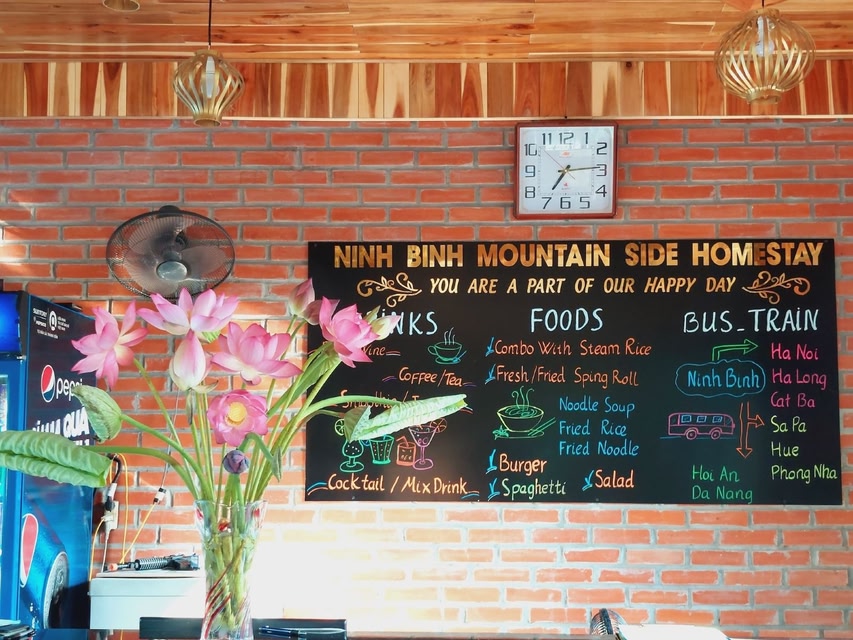 11 12 1
10 2
9 3
8 4
7 6 5
NINH BINH MOUNTAIN SIDE HOMESTAY
YOU ARE A PART OF OUR HAPPY DAY
FOODS
BUS_TRAIN
Combo With Steam Rice
Coffee/Tea
Fresh/Fried Sping Roll
Noodle Soup
Fried Rice
Fried Noodle
Burger
Spaghetti
Salad
Cocktail / Mix Drink
Ninh Binh
Ha Noi
Ha Long
Cat Ba
Sa Pa
Hue
Phong Nha
Hoi An
Da Nang
pepsi